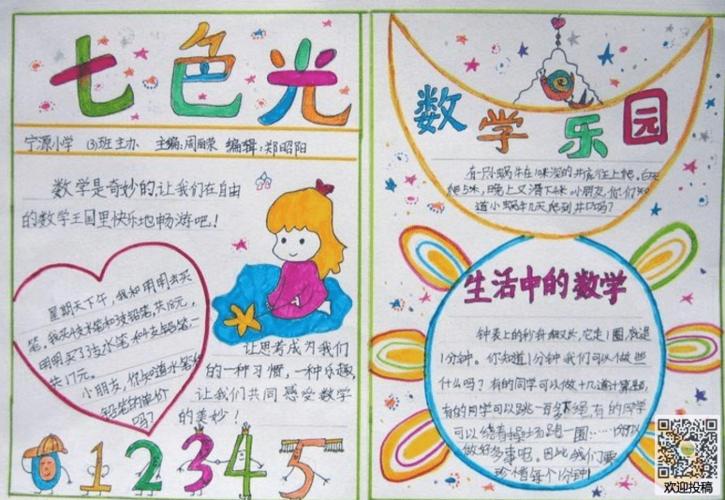 七色光
宁源小学 (3)班 主办 主编:周丽荣 编辑:郑昭阳
数学是奇妙的,让我们在自由
的数学王国里快乐地畅游吧!
星期天下午,我和明明去买
笔,我买
明明买了
共17元。
小朋友,你知道水笔和
铅笔的单价
吗?
让思考成为我们
的一种习惯,一种乐趣,
让我们共同感受数学
的美妙!
0 1 2 3 4 5
数学乐园
有一只蜗牛在10米深的井底往上爬。白天
爬5米,晚上又滑下4米。小朋友,你们知
道小蜗牛几天爬到井口吗?
生活中的数学
钟表上的秒针细又长,它走1圈,就是
1分钟。你知道1分钟我们可以做些
什么吗?有的同学可以做十几道计算题,
有的同学可以跳一百多下绳,有的同学
可以绕着操场跑一圈……1分钟可以
做好多事呢。因此我们要
珍惜每个1分钟!
欢迎投稿